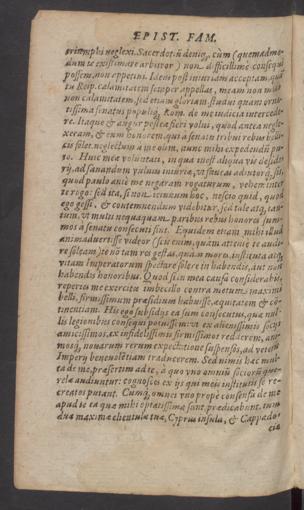 EPIST. FAM.
triumphi neglexi. Sacerdotiũ deniq;, cùm (quemadmo-
dum te existimare arbitror) non difficillimè consequi
possem, non appetiui. Idem post iniuriam acceptam, quã
tu Reip. calamitatem semper appellas, meam non modò
non calamitatem, sed etiam gloriam, studui quàm orna-
tissima senatus populiq; Rom. de me iudicia intercede-
re. Itaque & augur postea fieri volui, quod antea negle-
xeram, & eum honorem, qui à senatu tribui rebus belli-
cis solet, neglectum à me olim, nunc mihi expetendũ pu-
to. Huic meæ voluntati, in qua inest aliqua vis deside-
rij, ad sanandum vulnus iniuriæ, vt faueas adiutorq; sis,
quod paulo antè me negaram rogaturum, vehementer
te rogo: sed ita, si non ieiunum hoc, nescio quid, quod
ego gessi, & contemnendum videbitur, sed tale atq; tan-
tum, vt multi nequaquam paribus rebus honores sum-
mos à senatu consecuti sint. Equidem etiam mihi illud
animaduertisse videor (scis enim, quàm attentè te audi-
re soleam) te nõ tam res gestas, quàm mores, instituta atq;
vitam imperatorum spectare solere in habendis, aut non
habendis honoribus. Quod si in mea causa considerabis,
reperies me exercitu imbecillo contra metum maximi
belli, firmissimum præsidium habuisse, æquitatem & cõ-
tinentiam. His ego subsidijs ea sum consecutus, quæ nul-
lis legionibus consequi potuissem: vt ex alienissimis socijs
amicissimos, ex infidelissimis firmissimos redderem, ani-
mosq; nouarum rerum expectatione suspensos, ad veteris
Imperij beneuolentiam traducerem. Sed nimis hæc mul-
ta de me, præsertim ad te, à quo vno omniũ sociorũ que-
relæ audiuntur: cognosces ex ijs qui meis institutis se re-
creatos putant. Cumq; omnes vno propè consensu de me
apud te ea quæ mihi optatissima sunt, prædicabunt, tum
duæ maximæ clientelæ tuæ, Cyprus insula, & Cappado-
cia